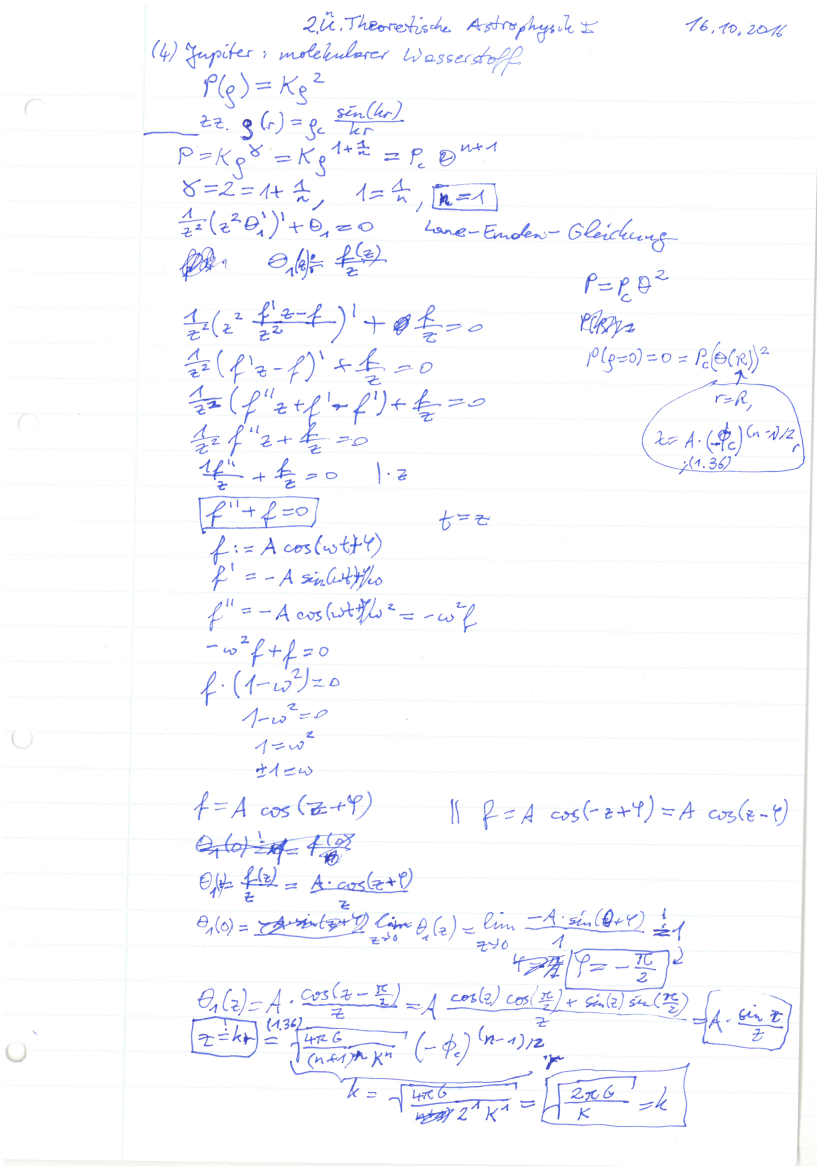 2.Ü. Theoretische Astrophysik I 16.10.2016
(4) Jupiter: molekularer Wasserstoff
P(ρ) = Kρ²
zz. ρ(r) = ρ_c sin(kr)/kr
P = Kρ^γ = Kρ^(1+1/n) = P_c Θ^(n+1)
γ = 2 = 1 + 1/n, 1 = 1/n, n = 1
1/z² (z² Θ₁')' + Θ₁ = 0 Lane-Emden-Gleichung
Θ₁(z) := f(z)/z
P = P_c Θ²
1/z² (z² (f'z-f)/z²)' + f/z = 0
P(ρ=0) = 0 = P_c(Θ(R))²
1/z² (f'z - f)' + f/z = 0
r = R,
1/z² (f''z + f' - f') + f/z = 0
z = A·(-Φ_c)^((n-1)/2) r
; (1.36)
1/z² f''z + f/z = 0
1f''/z + f/z = 0 | · z
f'' + f = 0 t = z
f := A cos(ωt+φ)
f' = -A sin(ωt+φ)ω
f'' = -A cos(ωt+φ)ω² = -ω²f
-ω²f + f = 0
f · (1-ω²) = 0
1-ω² = 0
1 = ω²
±1 = ω
f = A cos(z+φ) || f = A cos(-z+φ) = A cos(z-φ)
Θ₁(z) = f(z)/z = A·cos(z+φ)/z
Θ₁(0) = lim_(z→0) Θ₁(z) = lim_(z→0) -A·sin(0+φ)/1 =! 1
φ = -π/2
Θ₁(z) = A · cos(z-π/2)/z = A (cos(z) cos(π/2) + sin(z) sin(π/2))/z = A · sin z/z
z =! kr (1.36) = √(4πG/((n+1)^n K^n)) (-Φ_c)^((n-1)/2) r
k = √(4πG/(2¹ K¹)) = √(2πG/K) = k